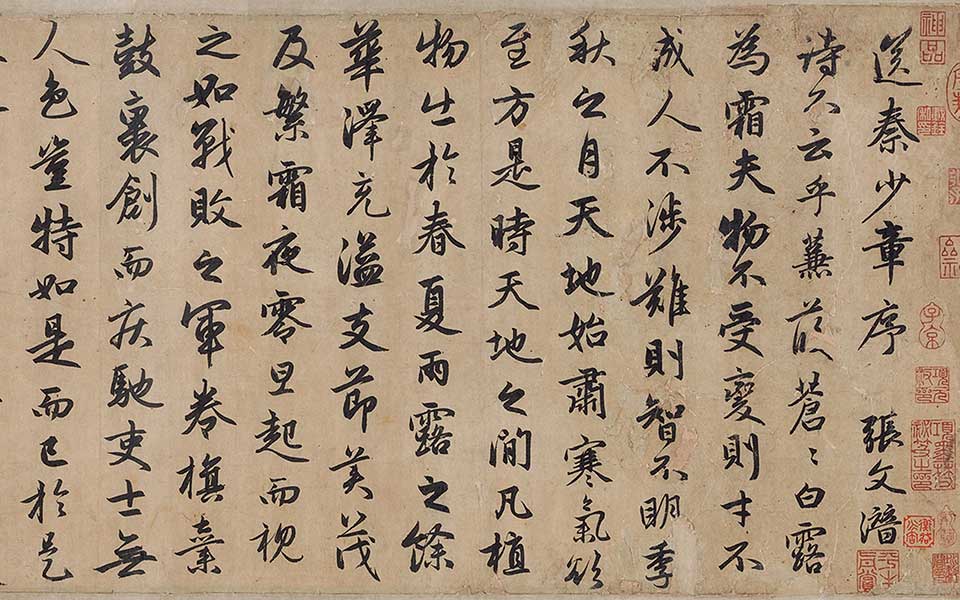 送秦少章序 張文潛
詩不云乎蒹葭蒼〻白露
為霜夫物不受變則才不
成人不涉難則智不明季
秋之月天地始肅寒氣欲
至方是時天地之間凡植
物出於春夏雨露之餘
華澤充溢支節美茂
及繁霜夜零旦起而視
之如戰敗之軍卷旗棄
鼓裹創而疾馳吏士無
人色豈特如是而已於是
神品
子京